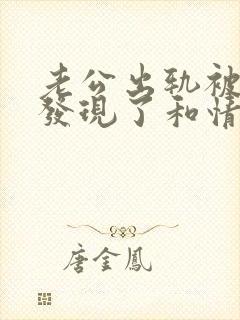 老公出軌被
發現了和情
唐金鳳